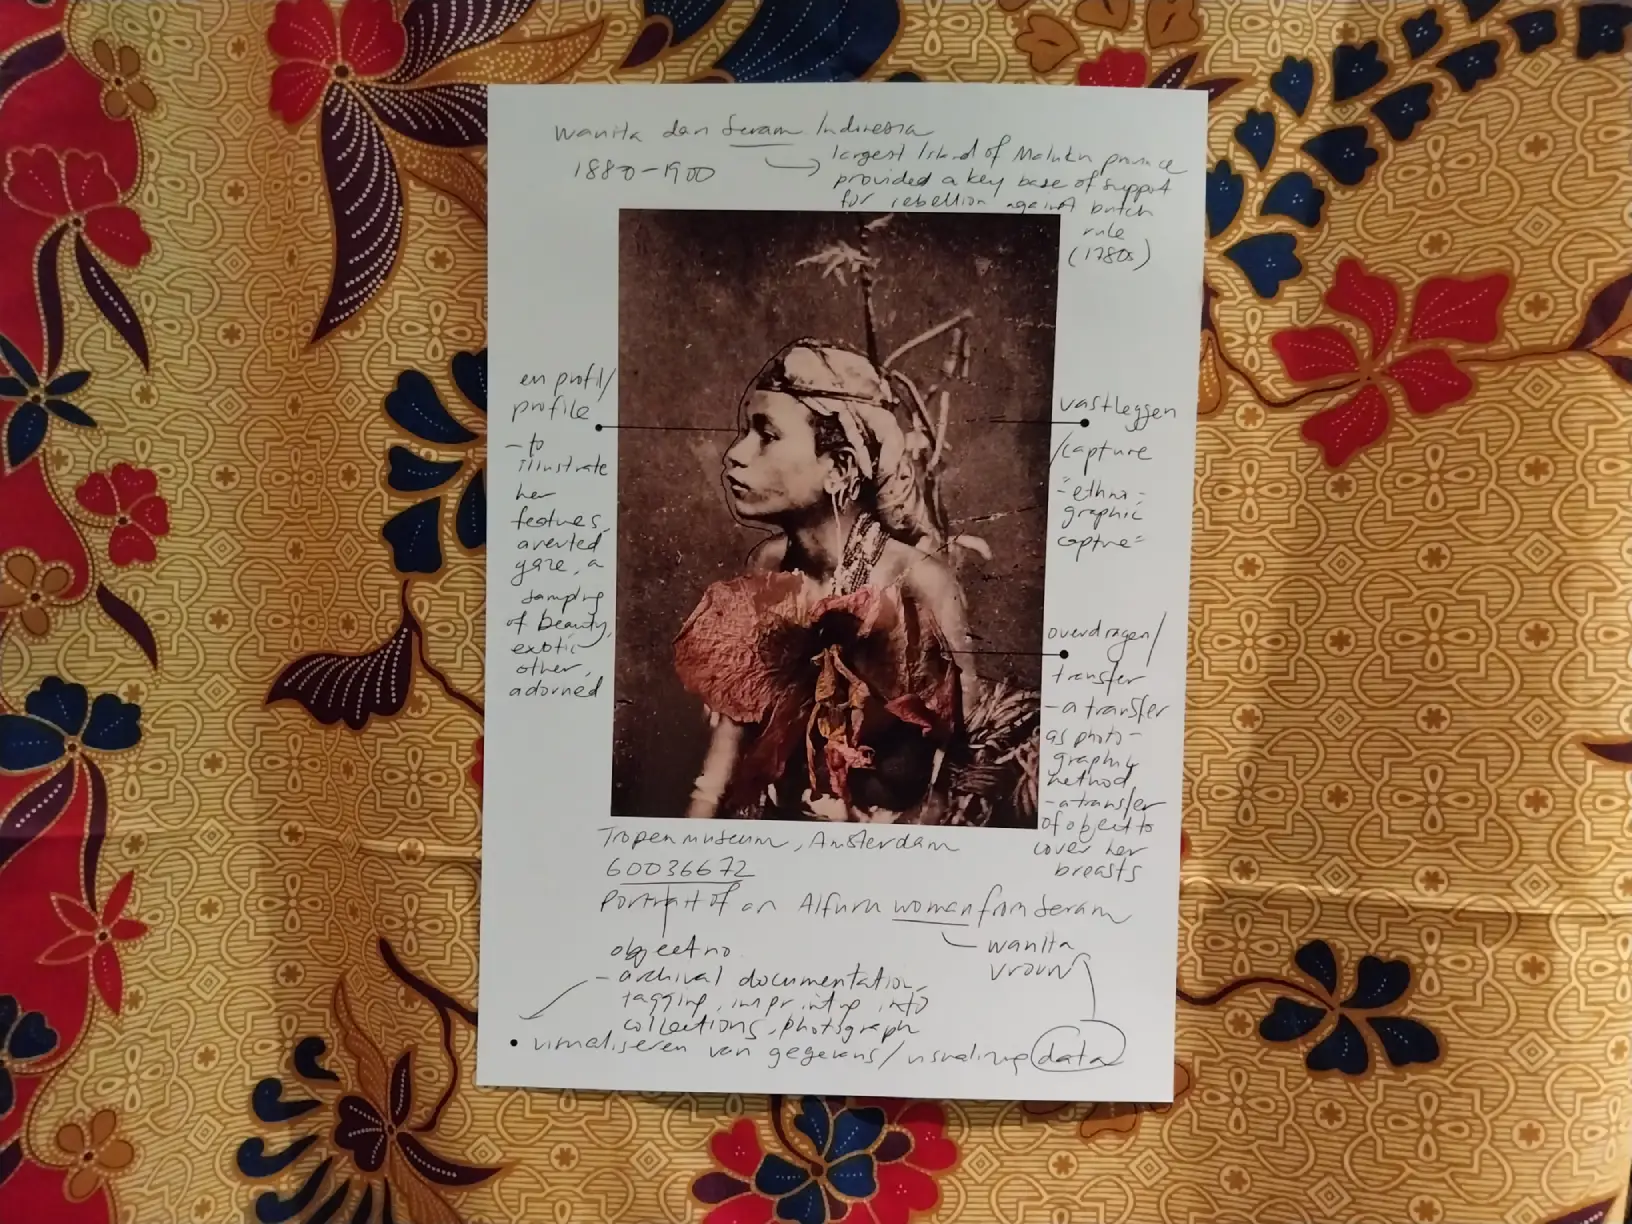 wanita dan Seram Indonesia
1880-1900
largest Island of Maluku province
provided a key base of support
for rebellion against Dutch
rule
(1780s)
en profil/
profile
- to
illustrate
her
features,
averted
gaze, a
sampling
of beauty,
exotic
other,
adorned
vastleggen
/capture
-"ethno-
graphic
capture"
overdragen/
transfer
- a transfer
as photo-
graphic
method
- a transfer
of object to
cover her
breasts
Tropenmuseum, Amsterdam
60036672
Portrait of an Alfurn woman from Seram
object no.
wanita
vrouw
- archival documentation,
tagging, imprinting into
collections, photograph
• visualiseren van gegevens/visualizing data